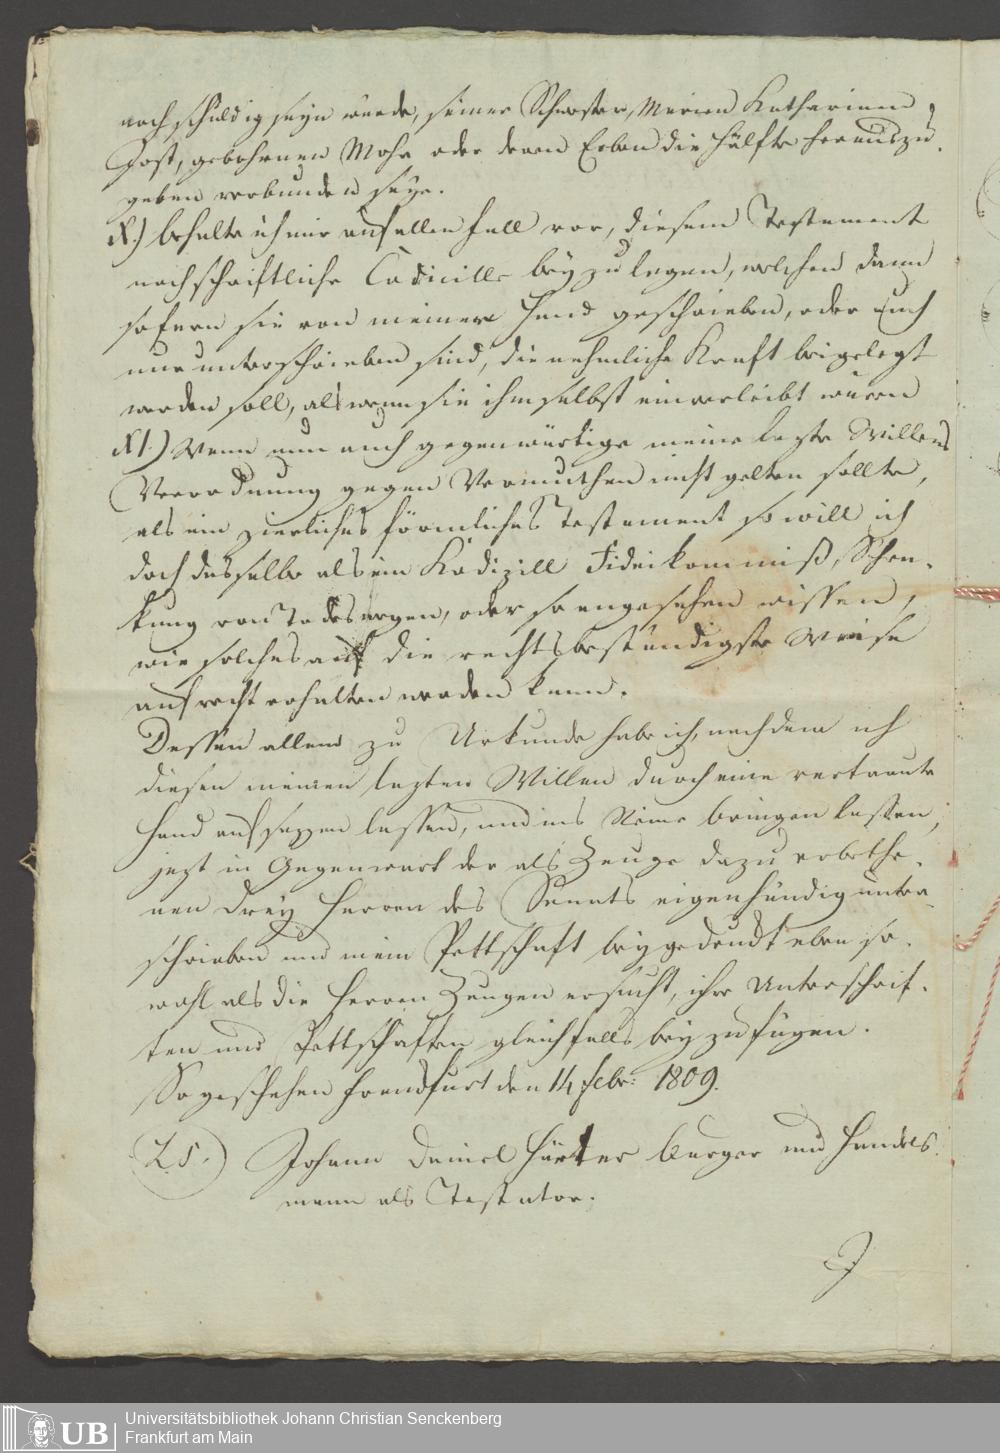 noch schuldig seyn werde, seiner Schwester, Marien Katharinen
Jost, gebohrnen Mohr oder deren Erben die Hälfte herauszu-
geben verbunden seye.
X.) behalte ich mir auf allen Fall vor, diesem Testament
noch schriftliche Codicille beyzulegen, welchen dann
sofern sie von meiner Hand geschrieben, oder auch
nur unterschrieben sind, die nehmliche Kraft beigelegt
werden soll, als wenn sie ihm selbst einverleibt wären
XI.) Wenn nun auch gegenwärtige meine lezte Willens
Verordnung gegen Vermuthen nicht gelten sollte,
als ein zierliches förmliches Testament so will ich
doch dasselbe als ein Kodizill Fideikommiß, Schen-
kung von Todeswegen, oder so angesehen wissen,
wie solches auf die rechtsbeständigste Weise
aufrecht erhalten werden kann.
Dessen allem zu Urkunde habe ich, nachdem ich
diesen meinen lezten Willen durch eine vertraute
Hand aufsezzen lassen, und ins Reine bringen lassen,
jezt in Gegenwart der als Zeuge dazu erbethe-
nen drey Herren des Senats eigenhändig unter-
schrieben und mein Pettschaft beygedruckt eben so-
wohl als die Herren Zeugen ersucht, ihre Unterschrif-
ten und Pettschaften gleichfalls beyzufügen.
So geschehen Frankfurt den 14 Febr: 1809.
L. S.) Johann Daniel Härter Burger und Handels-
mann als Testator.
Universitätsbibliothek Johann Christian Senckenberg
Frankfurt am Main
UB